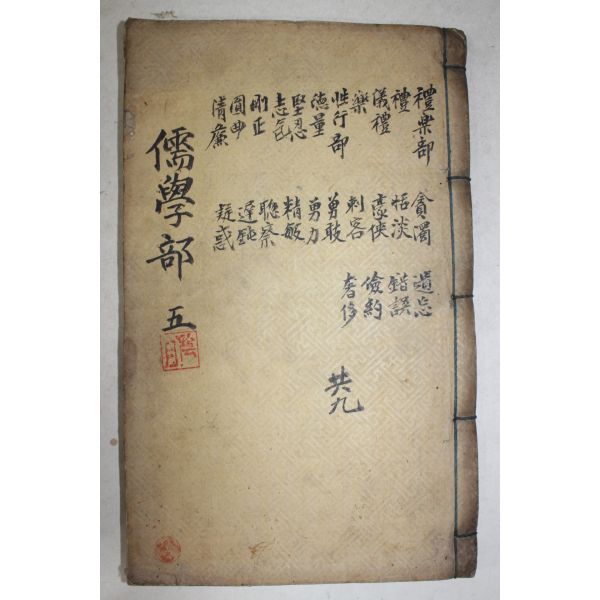 禮樂部
禮
儀禮
樂
性行部
德量
堅忍
志氣
剛正
圓曲
清廉
貪濁
恬淡
豪俠
刺客
勇敢
勇力
精敏
聰察
遲鈍
疑惑
遺忘
錯誤
儉約
奢侈
共九
儒學部 五